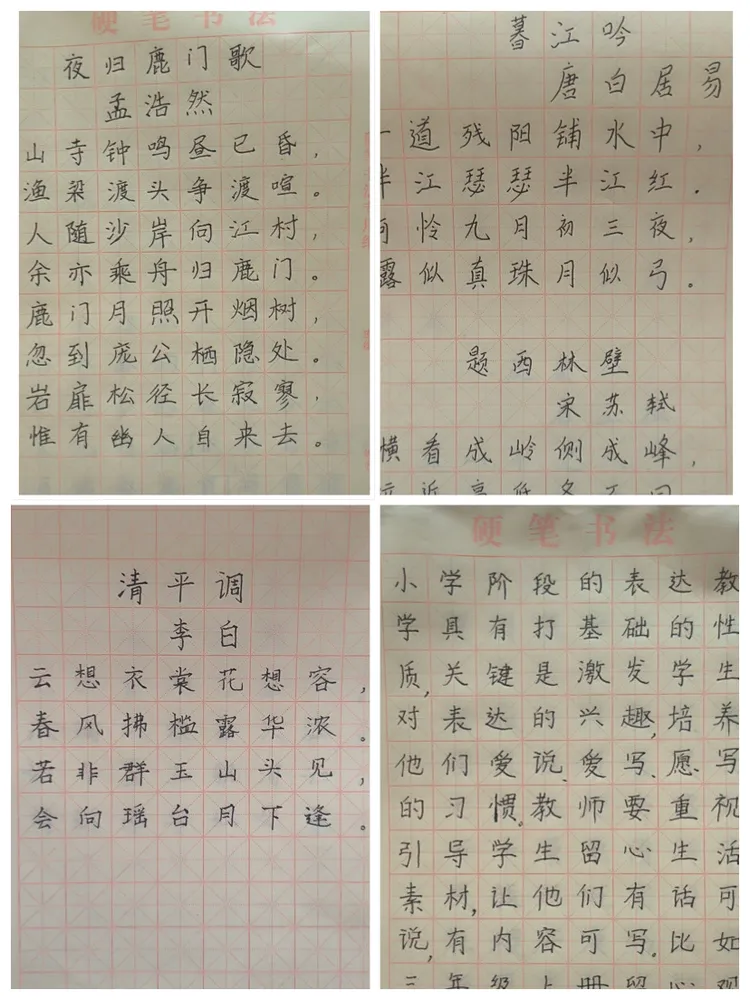 硬笔书法
夜归鹿门歌
孟浩然
山寺钟鸣昼已昏，
渔梁渡头争渡喧。
人随沙岸向江村，
余亦乘舟归鹿门。
鹿门月照开烟树，
忽到庞公栖隐处。
岩扉松径长寂寥，
惟有幽人自来去。
暮江吟
唐白居易
一道残阳铺水中，
半江瑟瑟半江红。
可怜九月初三夜，
露似真珠月似弓。
题西林壁
宋苏轼
横看成岭侧成峰，
远近高低各不同
清平调
李白
云想衣裳花想容，
春风拂槛露华浓。
若非群玉山头见，
会向瑶台月下逢。
硬笔书法
小学阶段的表达教
学具有打基础的性
质，关键是激发学生
对表达的兴趣，培养
他们爱说、爱写、愿写
的习惯。教师要重视
引导学生留心生活
素材，让他们有话可
说，有内容可写。比如
三年级上册留心观